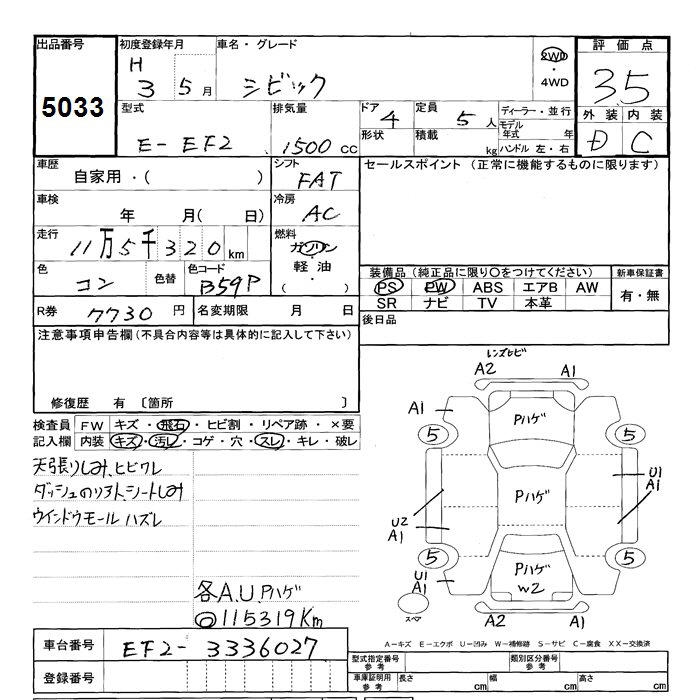 出品番号 初度登録年月 車名・グレード 2WD・4WD 評価点
5033 H 3 5月 シビック 3.5
型式 排気量 ドア 4 定員 5人 ディーラー・並行 外装 内装
E-EF2 1500 cc 形状 積載 kg モデル年式 年 ハンドル 左・右 D C
車歴 シフト セールスポイント (正常に機能するものに限ります)
自家用・( ) FAT
車検 冷房
年 月( 日) AC
走行 燃料
11万5千320km ガソリン
軽油・( )
色 色替 色コード 装備品 (純正品に限り○をつけてください) 新車保証書
コン B59P PS PW ABS エアB AW 有・無
SR ナビ TV 本革
R券 7730円 名変期限 月 日 後日品
注意事項申告欄 (不具合内容等は具体的に記入して下さい)
修復歴 有 〔箇所 〕
検査員記入欄 FW キズ・飛石・ヒビ割・リペア跡・×要
内装 キズ・汚レ・コゲ・穴・スレ・キレ・破レ
天張りしみ、ヒビワレ
ダッシュのリ外、シートしみ
ウインドウモール ハズレ
各A.U.Pハゲ
○115319Km
レンズヒビ
A2 A1
A1 Pハゲ
5 5
Pハゲ U1 A1
U2 A1
5 Pハゲ 5
U1 A1 W2
スペア A2 A1
A－キズ E－エクボ U－凹み W－補修跡 S－サビ C－腐食 XX－交換済
車台番号 EF2-3336027
型式指定番号 参考 類別区分番号 参考
登録番号 車庫証明用 参考 長さ cm 幅 cm 高さ cm